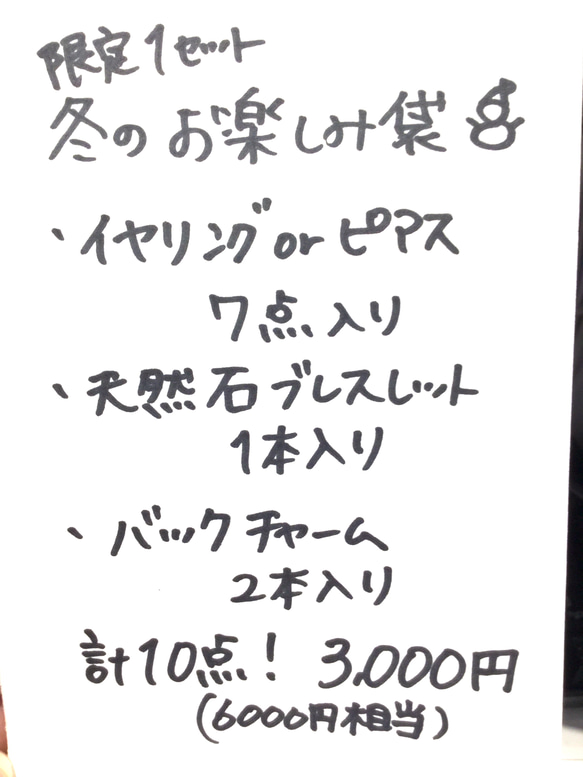 限定1セット
冬のお楽しみ袋
・イヤリングorピアス
7点入り
・天然石ブレスレット
1本入り
・バックチャーム
2本入り
計10点! 3,000円
(6000円相当)